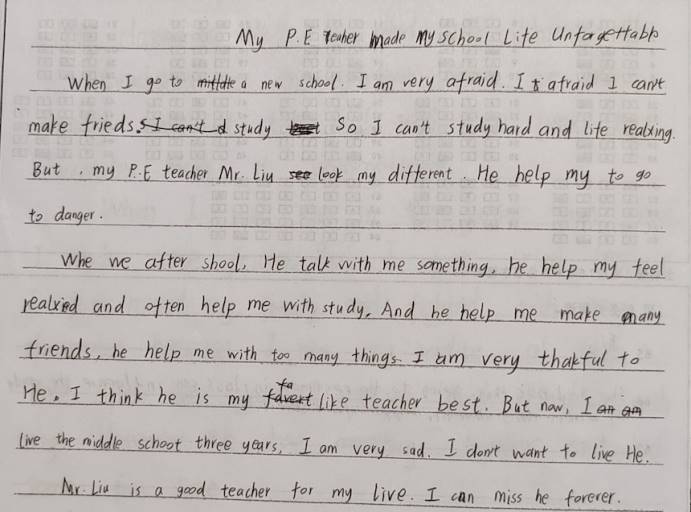 My P.E Teaher made My school Life Unforgettabb
When I go to middle a new school. I am very afraid. I afraid I can't
make frieds. I can't d study So I can't study hard and life realxing.
But , my P.E teacher Mr. Liu see look my different. He help my to go
to danger.
Whe we after shool, He talk with me something, he help my feel
realxied and often help me with study, And he help me make many
friends, he help me with too many things. I am very thakful to
He. I think he is my favert fa like teacher best. But now, I an am
live the middle school three years, I am very sad. I don't want to live He.
Mr. Liu is a good teacher for my live. I can miss he forever.